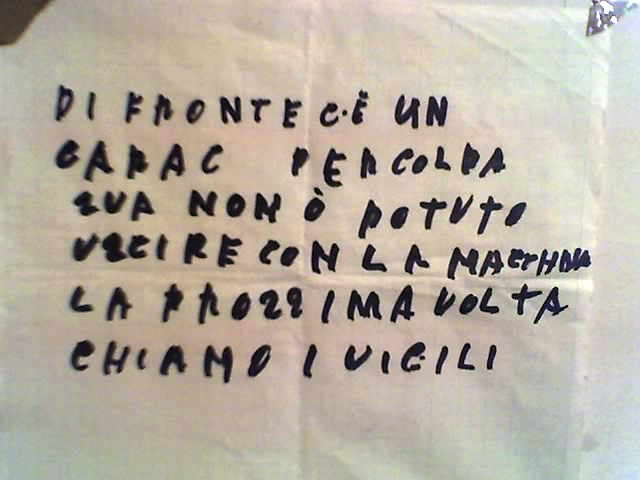 DI FRONTE C'È UN
GARAC PER COLPA
SUA NON Ò POTUTO
USCIRE CON LA MACCHINA
LA PROSSIMA VOLTA
CHIAMO I VIGILI